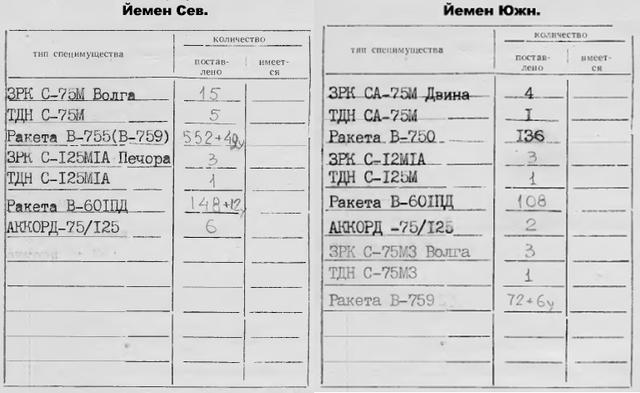 Йемен Сев.
количество
тип специмущества
постав-
лено
имеет-
ся
ЗРК С-75М Волга 15
ТДН С-75М 5
Ракета В-755(В-759) 552+40у
ЗРК С-I25МIА Печора 3
ТДН С-I25МIА 1
Ракета В-60IПД 148+12у
АККОРД-75/I25 6
Йемен Южн.
количество
тип специмущества
постав-
лено
имеет-
ся
ЗРК СА-75М Двина 4
ТДН СА-75М I
Ракета В-750 I36
ЗРК С-I2МIА 3
ТДН С-I25М 1
Ракета В-60IПД 108
АККОРД -75/I25 2
ЗРК С-75МЗ Волга 3
ТДН С-75МЗ 1
Ракета В-759 72+6у